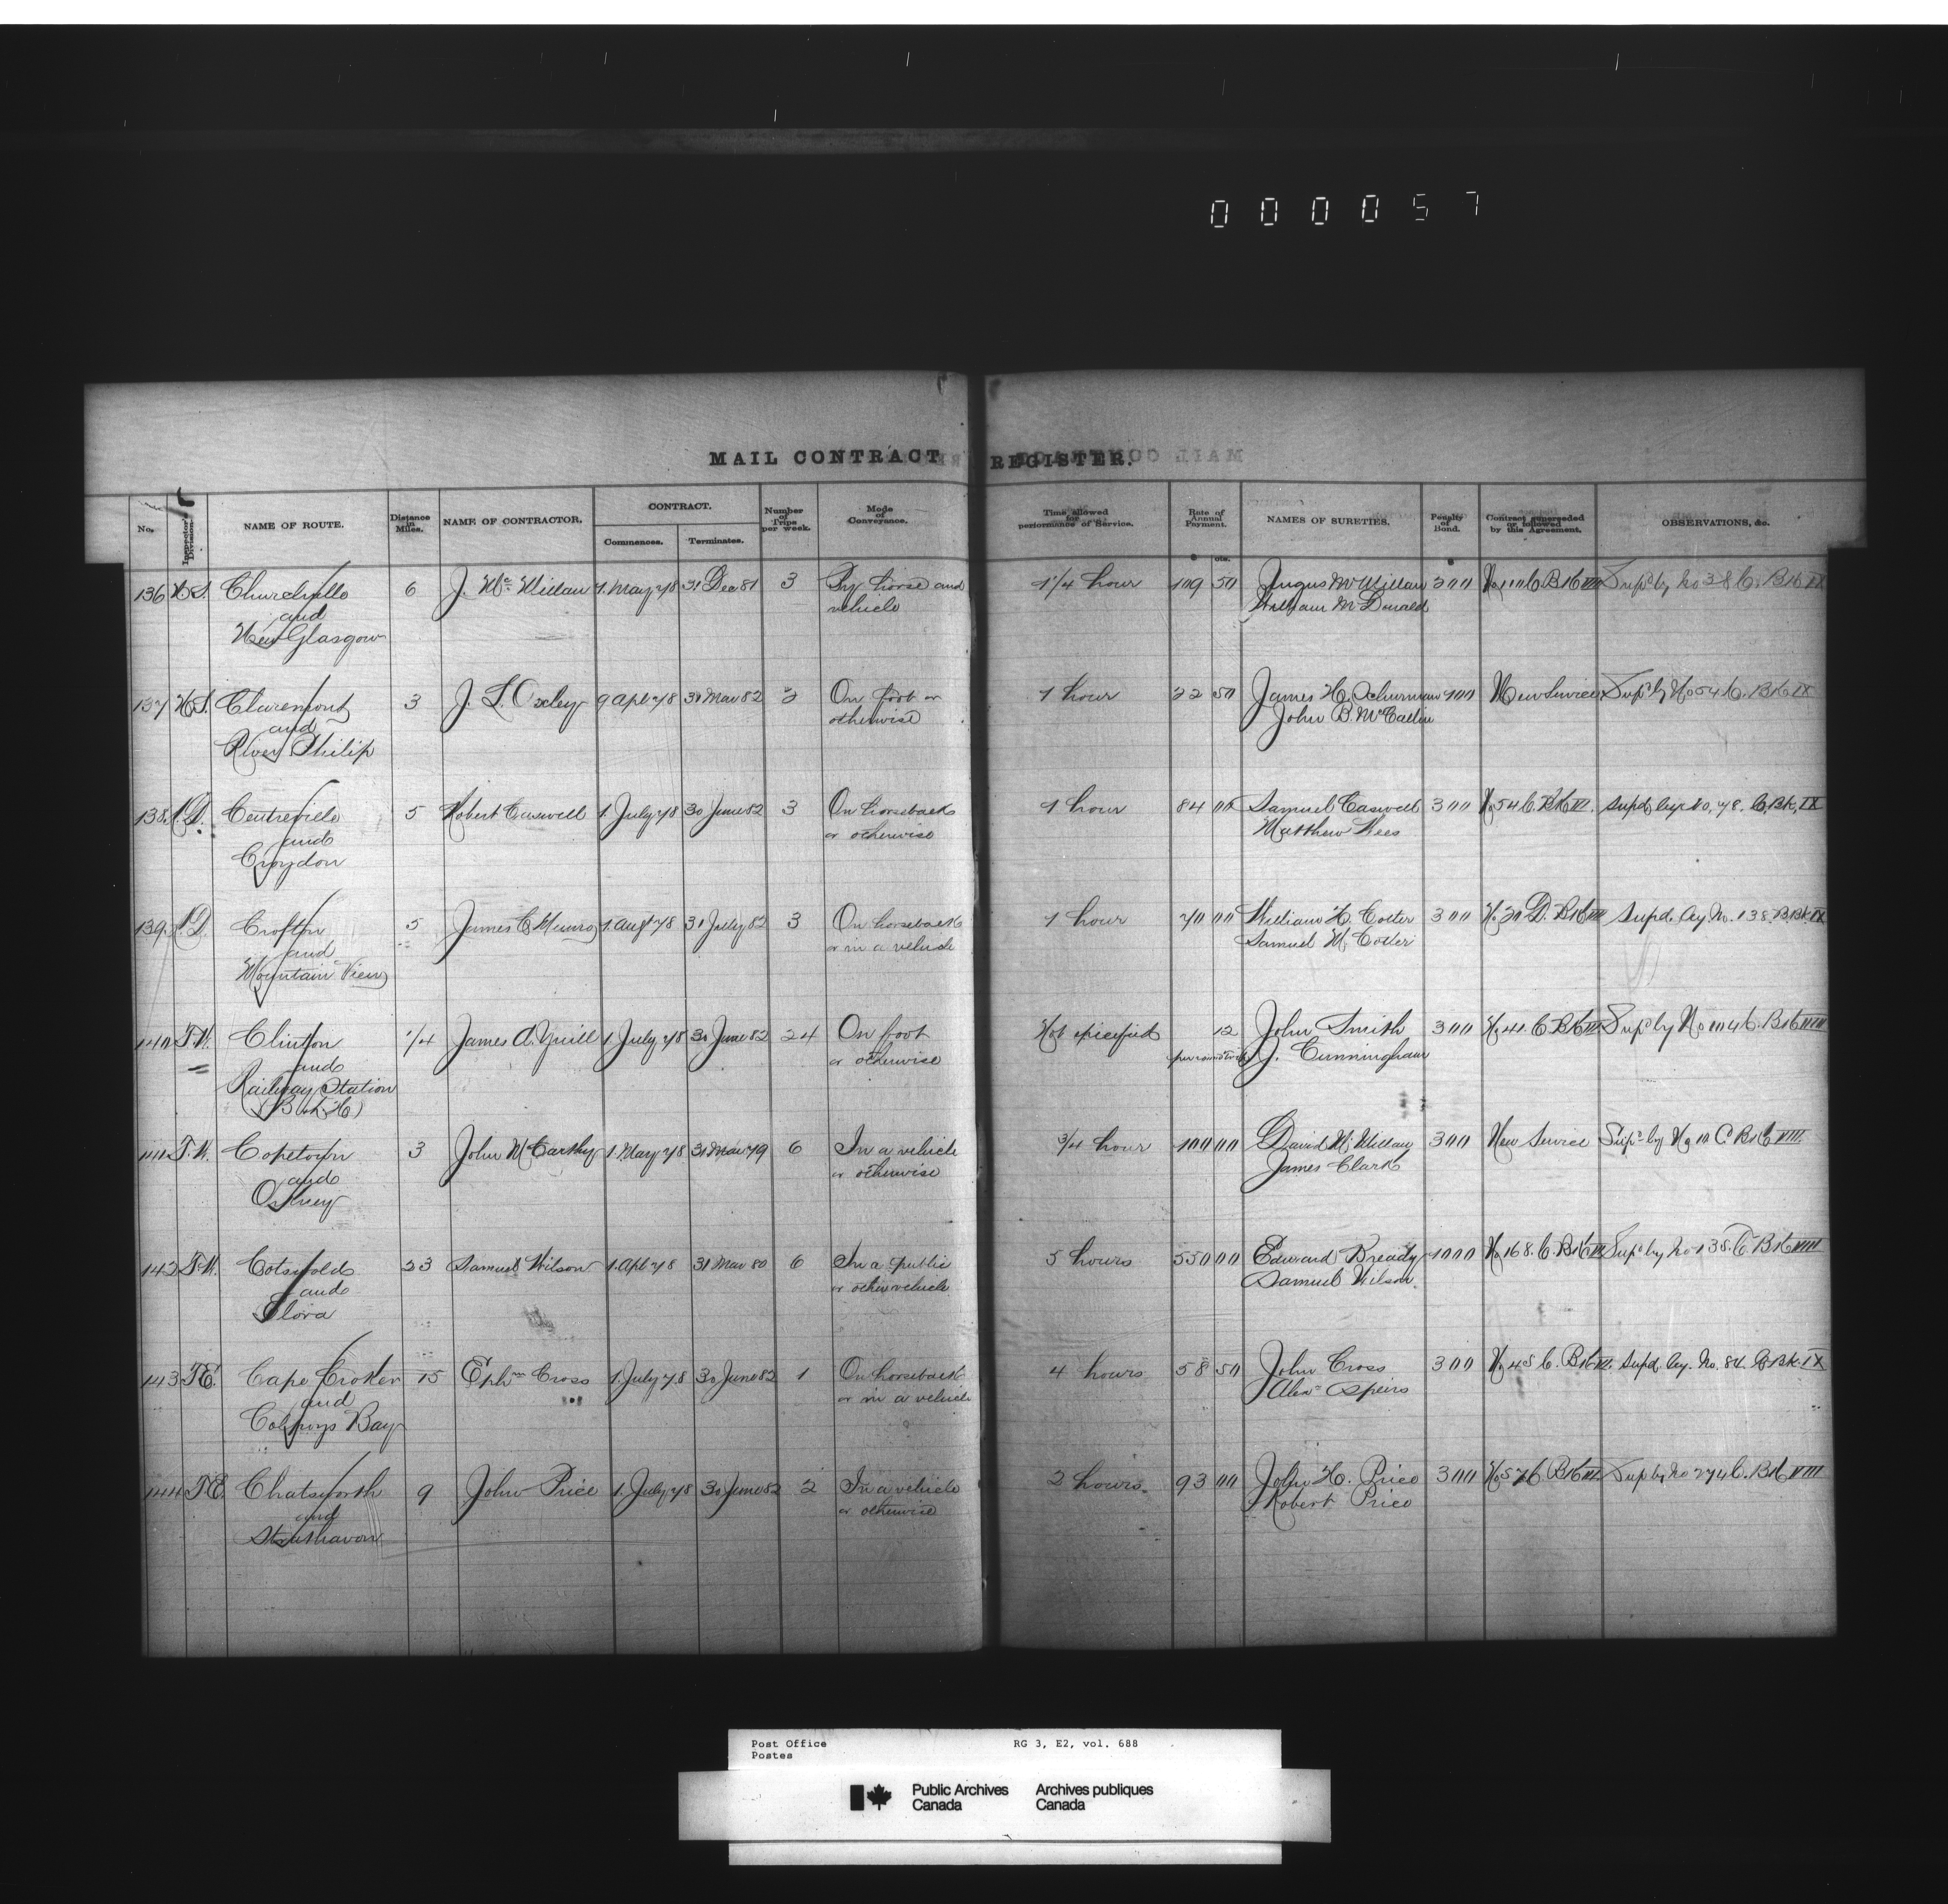 000057
MAIL CONTRACT REGISTER.
No. Inspector's Division. NAME OF ROUTE. Distance in Miles. NAME OF CONTRACTOR. CONTRACT. Commences. Terminates. Number of Trips per week. Mode of Conveyance. Time allowed for performance of Service. Rate of Annual Payment. NAMES OF SURETIES. Penalty of Bond. Contract superseded or followed by this Agreement. OBSERVATIONS, &c.
$ cts. $
136 N.S. Churchville 6 J. McMillan 1. May 78 31 Dec 81 3 By horse and 1 1/4 hour 109 50 Angus McMillan 300 No 110 C. Bk VII Supd by No 38 C. Bk IX
and vehicle William McDonald
New Glasgow
137 N.S. Claremont 3 J. L. Oxley 9 Apl 78 31 Mar 82 2 On foot or 1 hour 22 50 James H. Schurman 100 New Service Supd by No 54 C. Bk IX
and otherwise John B. McCallin
River Philip
138 Centreville 5 Robert Caswell 1. July 78 30 June 82 3 On horseback 1 hour 84 00 Samuel Caswell 300 No 54 C. Bk VI. Supd. by No. 78. C. Bk. IX
and or otherwise Matthew Wees
Croydon
139 Crofton 5 James C. Munro 1. Augt 78 31 July 82 3 On horseback 1 hour 70 00 William H. Coller 300 No 20 D. Bk VII Supd. by No. 138. B. Bk. IX
and or in a vehicle Samuel M. Coller
Mountain View
140 T.W. Clinton 1/4 James A. Yuill 1 July 78 30 June 82 24 On foot Not specified 12 John Smith 300 No 41 C Bk VII Supd by No 104 C. Bk VIII
and or otherwise per round trip J. Cunningham
Railway Station
(B & L H)
141 T.W. Copetown 3 John McCarthy 1. May 78 31 Mar 79 6 In a vehicle 3/4 hour 100 00 David McMillan 300 New Service Supd by No 10 C Bk VIII.
and or otherwise James Clark
Orkney
142 T.W. Cotswold 23 Samuel Wilson 1. Apl 78 31 Mar 80 6 In a public 5 hours 550 00 Edward Bready 1000 No 168. C. Bk VII Supd by No 138. C Bk VIII
and or other vehicle Samuel Wilson.
Elora
143 T.E. Cape Croker 15 Ephm Cross 1. July 78 30 June 82 1 On horseback 4 hours 58 50 John Cross 300 No 45 C. Bk VII. Supd. by. No. 84. C. Bk. IX
and or in a vehicle Alexr Speirs
Colpoys Bay
144 T.E. Chatsworth 9 John Price 1. July 78 30 June 82 2 In a vehicle 2 hours. 93 00 John H. Price 300 No 57 C. Bk VII. Supd by No 274 C. Bk VIII
and or otherwise Robert Price
Strathavon
Post Office RG 3, E2, vol. 688
Postes
Public Archives Archives publiques
Canada Canada